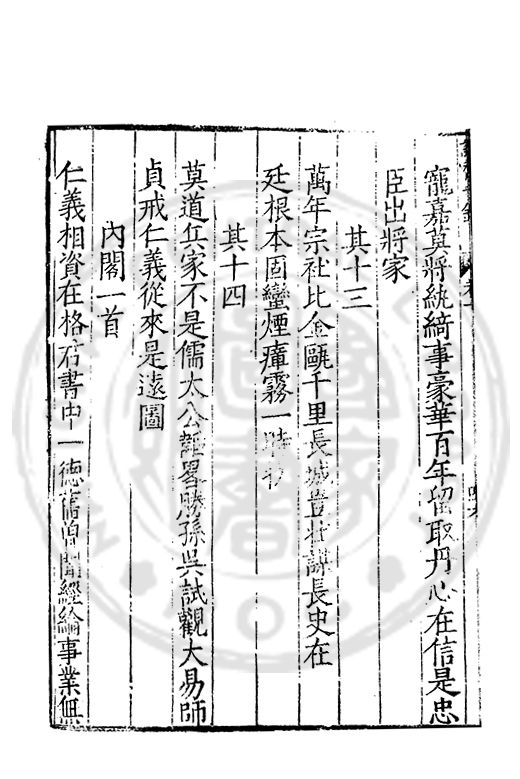 寵嘉莫將紈綺事豪華百年留取丹心在信是忠
臣出將家
其十三
萬年宗社比金甌千里長城豈壯謀長史在
廷根本固蠻煙瘴霧一時收
其十四
莫道兵家不是儒太公韜畧勝孫吳試觀大易師
貞戒仁義從來是遠圖
內閣一首
仁義相資在格君書中一德舊曾聞經綸事業無